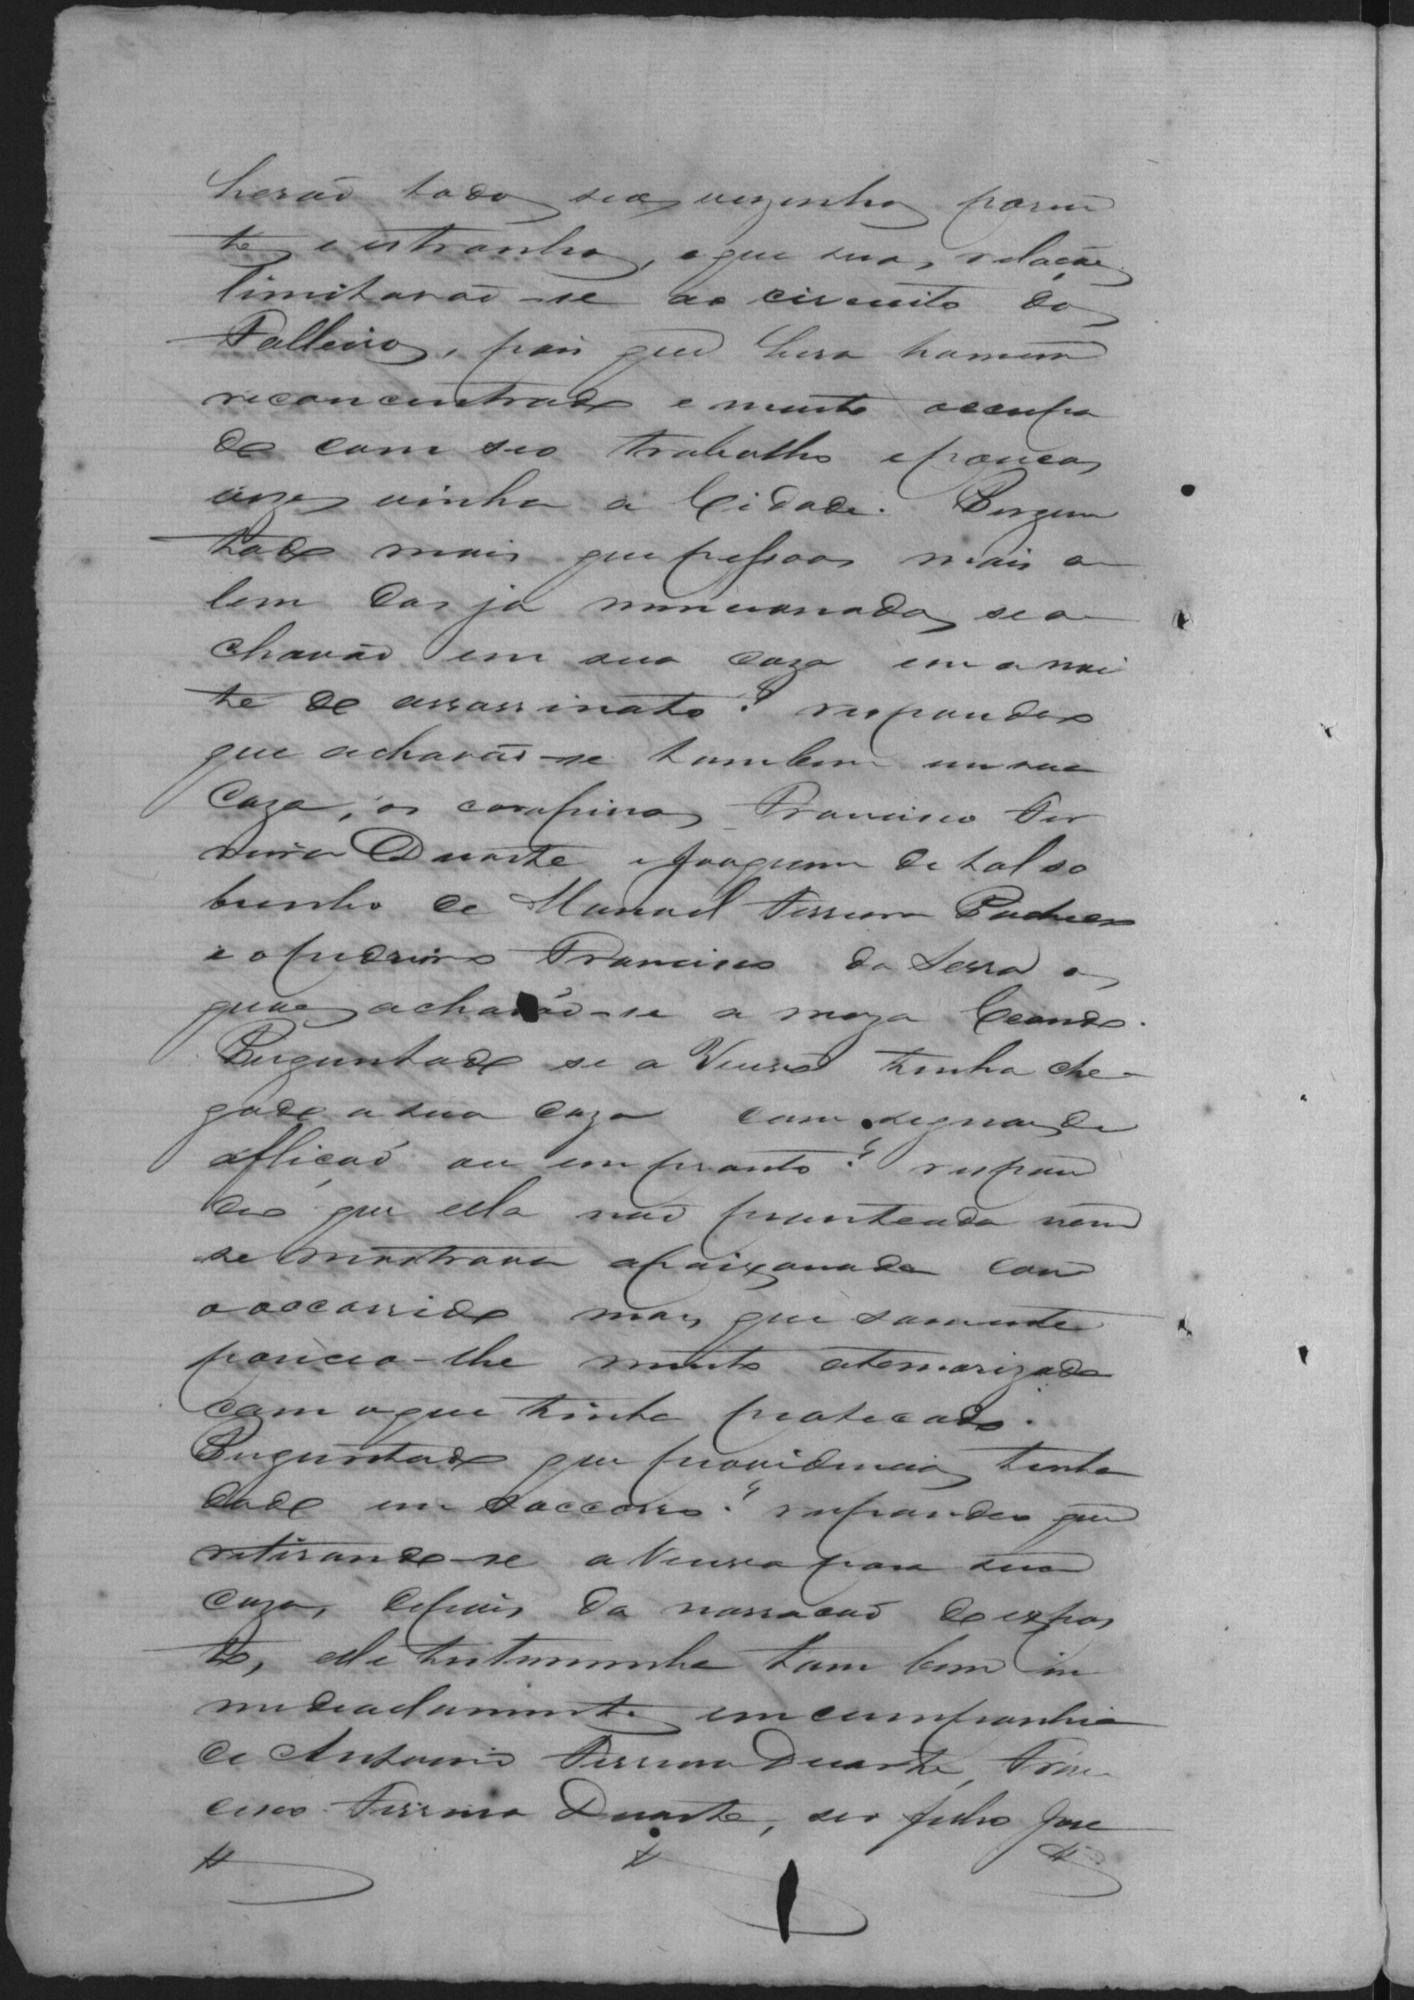 herão todos seos vezinhos paren
tes e estranhos, e que suas relações
limitavão-se ao circuito dos
Palheiros, pois que hera homem
reconcentrado e muito occupa
do com seo trabalho e poucas
vezes vinha a Cidade. Pergun
tado mais que pessoas mais a
lem das já mencionadas se a
chavão em sua caza em a noi
te do assassinato? respondeo
que achavão-se tambem em sua
Caza, os carapinas Francisco Fer
reira Duarte e Joaquim de tal so
brinho de Manoel Ferreira Pacheco
e o pedreiro Francisco da Serra os
quaes achavão-se a meza Ceando.
Perguntado se a Viuva tinha che
gado a sua caza com signaes de
aflição ou em pranto? respon
deo que ella não pranteada nem
se mostrava apaixonada com
o occorrido mas que somente
pareceo-lhe muito atemorizada
com o que tinha praticado.
Perguntado que providencias tinha
dado em soccorro? respondeo que
retirando-se a Viuva para sua
caza, depois da narração do expos
to, elle testemunha tambem im
mediatamente em companhia
de Antonio Ferreira Duarte, Fran
cisco Ferreira Duarte, seo filho José